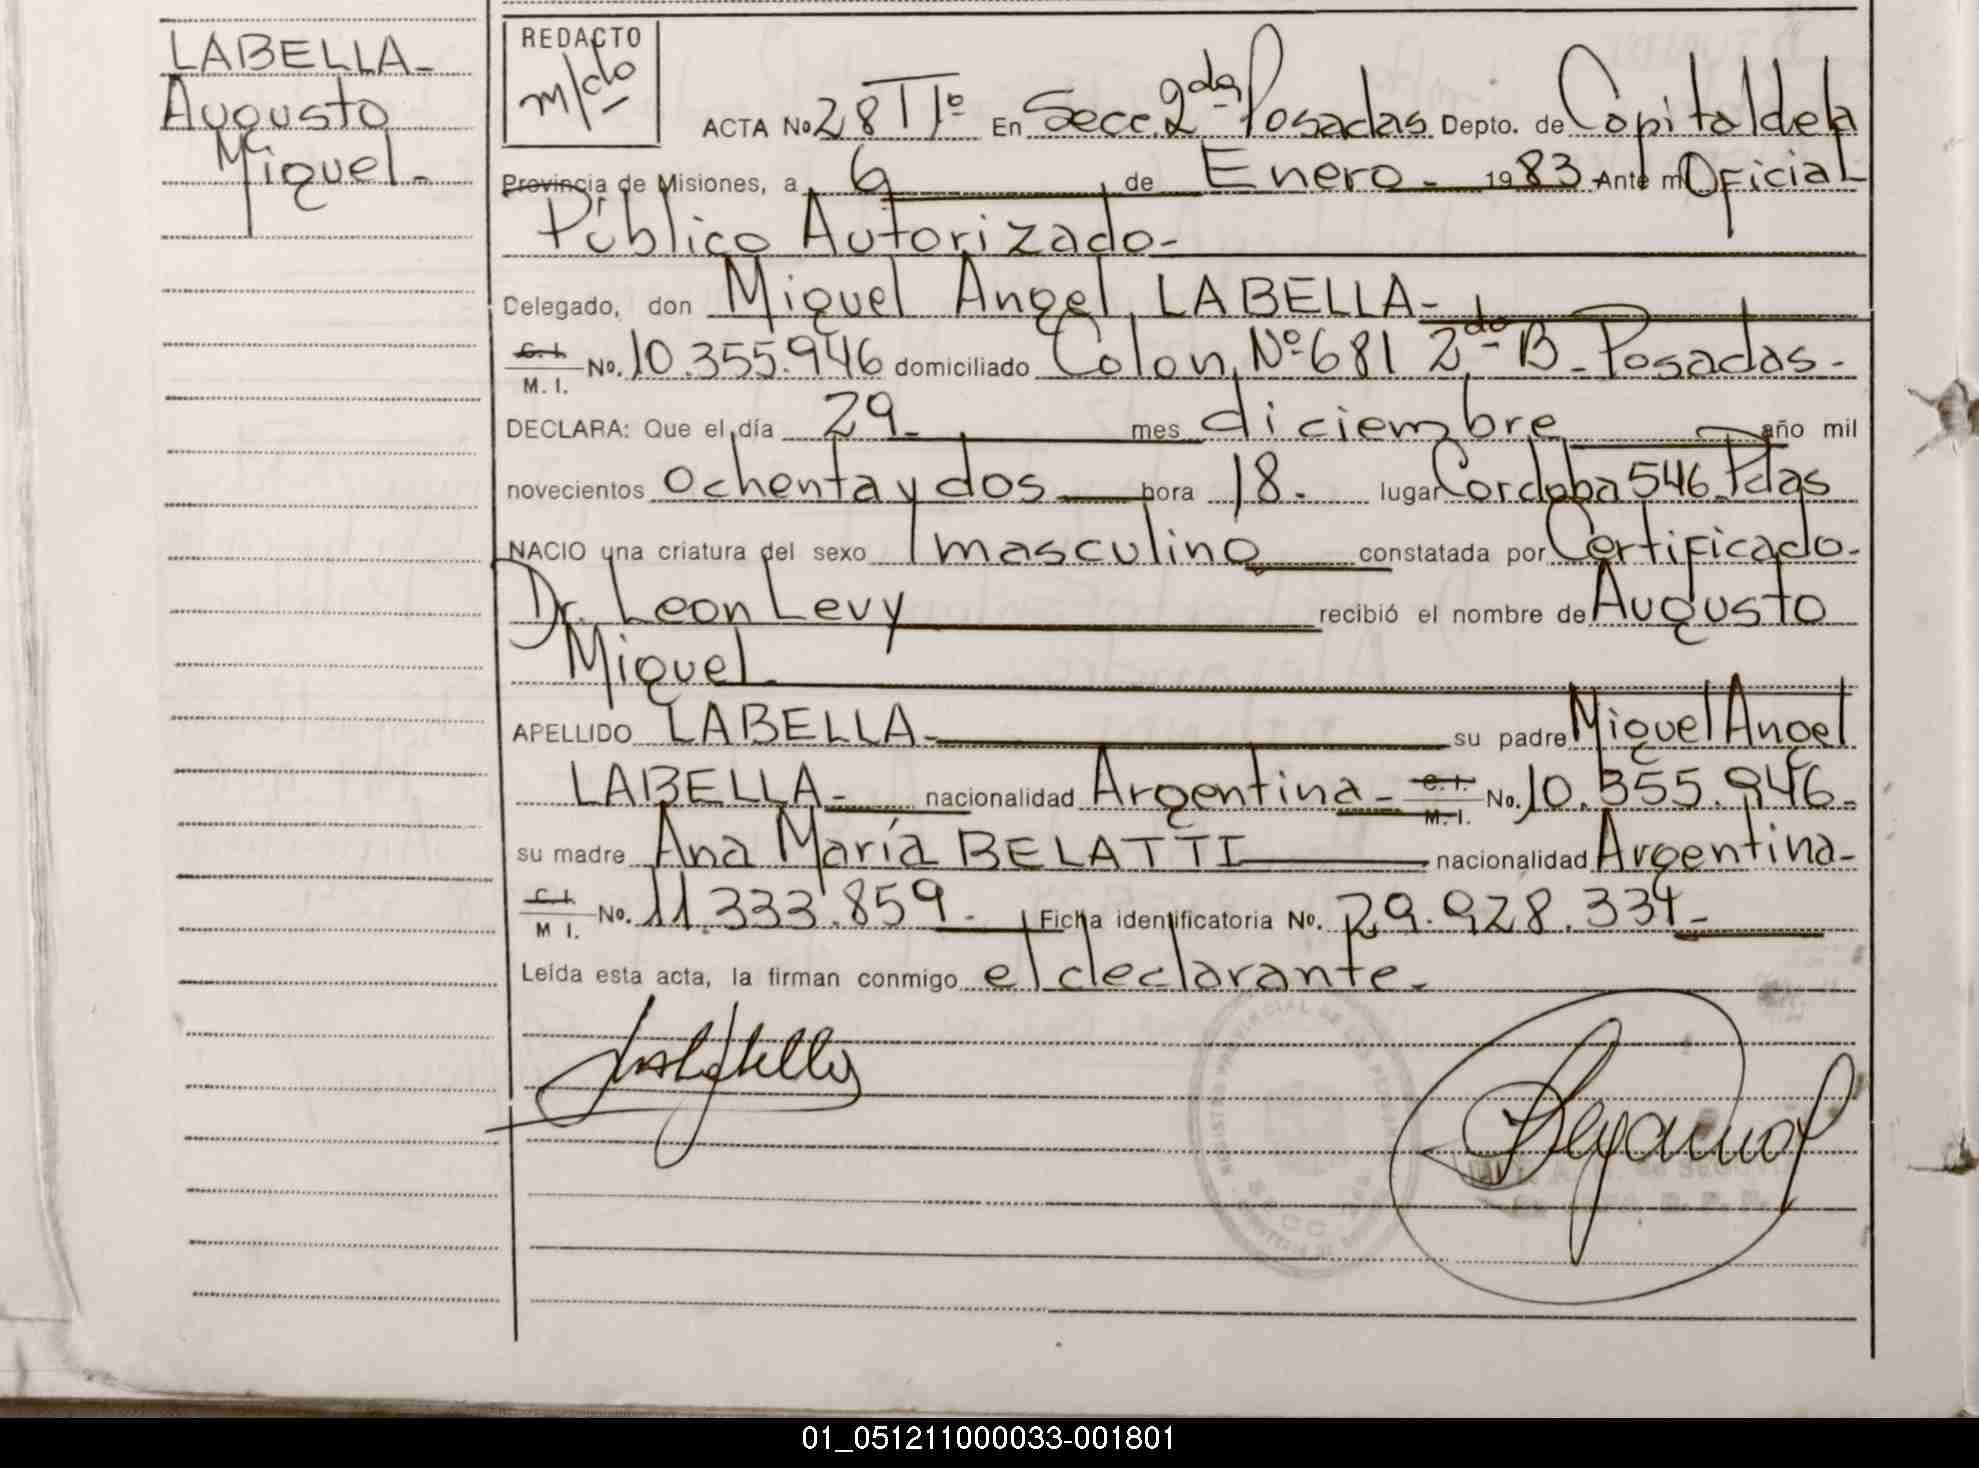 LABELLA-
Augusto
Miguel.-
REDACTO
m/do
ACTA No 28 T1º En Secc. 2da Posadas Depto. de Capital de la
Provincia de Misiones, a 6 de Enero.- 1983 Ante mi Oficial
Público Autorizado-
Delegado, don Miguel Angel LABELLA-
C. I.
M. I. No. 10.355.946 domiciliado Colon Nº 681 2do- B- Posadas.-
DECLARA: Que el día 29- mes diciembre año mil
novecientos ochenta y dos hora 18.- lugar Cordoba 546- Pdas
NACIO una criatura del sexo masculino constatada por Certificado.-
Dr. Leon Levy recibió el nombre de Augusto
Miguel.
APELLIDO LABELLA- su padre Miguel Angel
LABELLA- nacionalidad Argentina- C. I. M. I. No. 10.355.946-
su madre Ana María BELATTI nacionalidad Argentina-
C. I.
M I. No. 11.333.859- Ficha identificatoria No. 29.928.334-
Leída esta acta, la firman conmigo el declarante.-
01_051211000033-001801